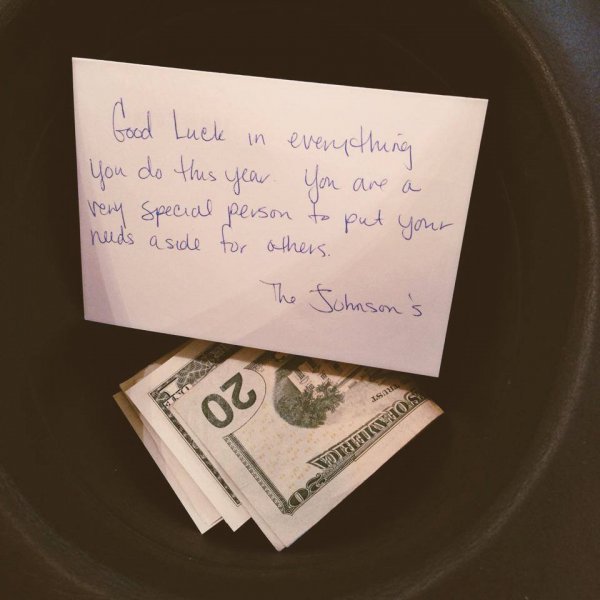 Good Luck in everything
you do this year. You are a
very special person to put your
needs aside for others.
The Johnson's
20
TRUST
S OF AMERICA
20